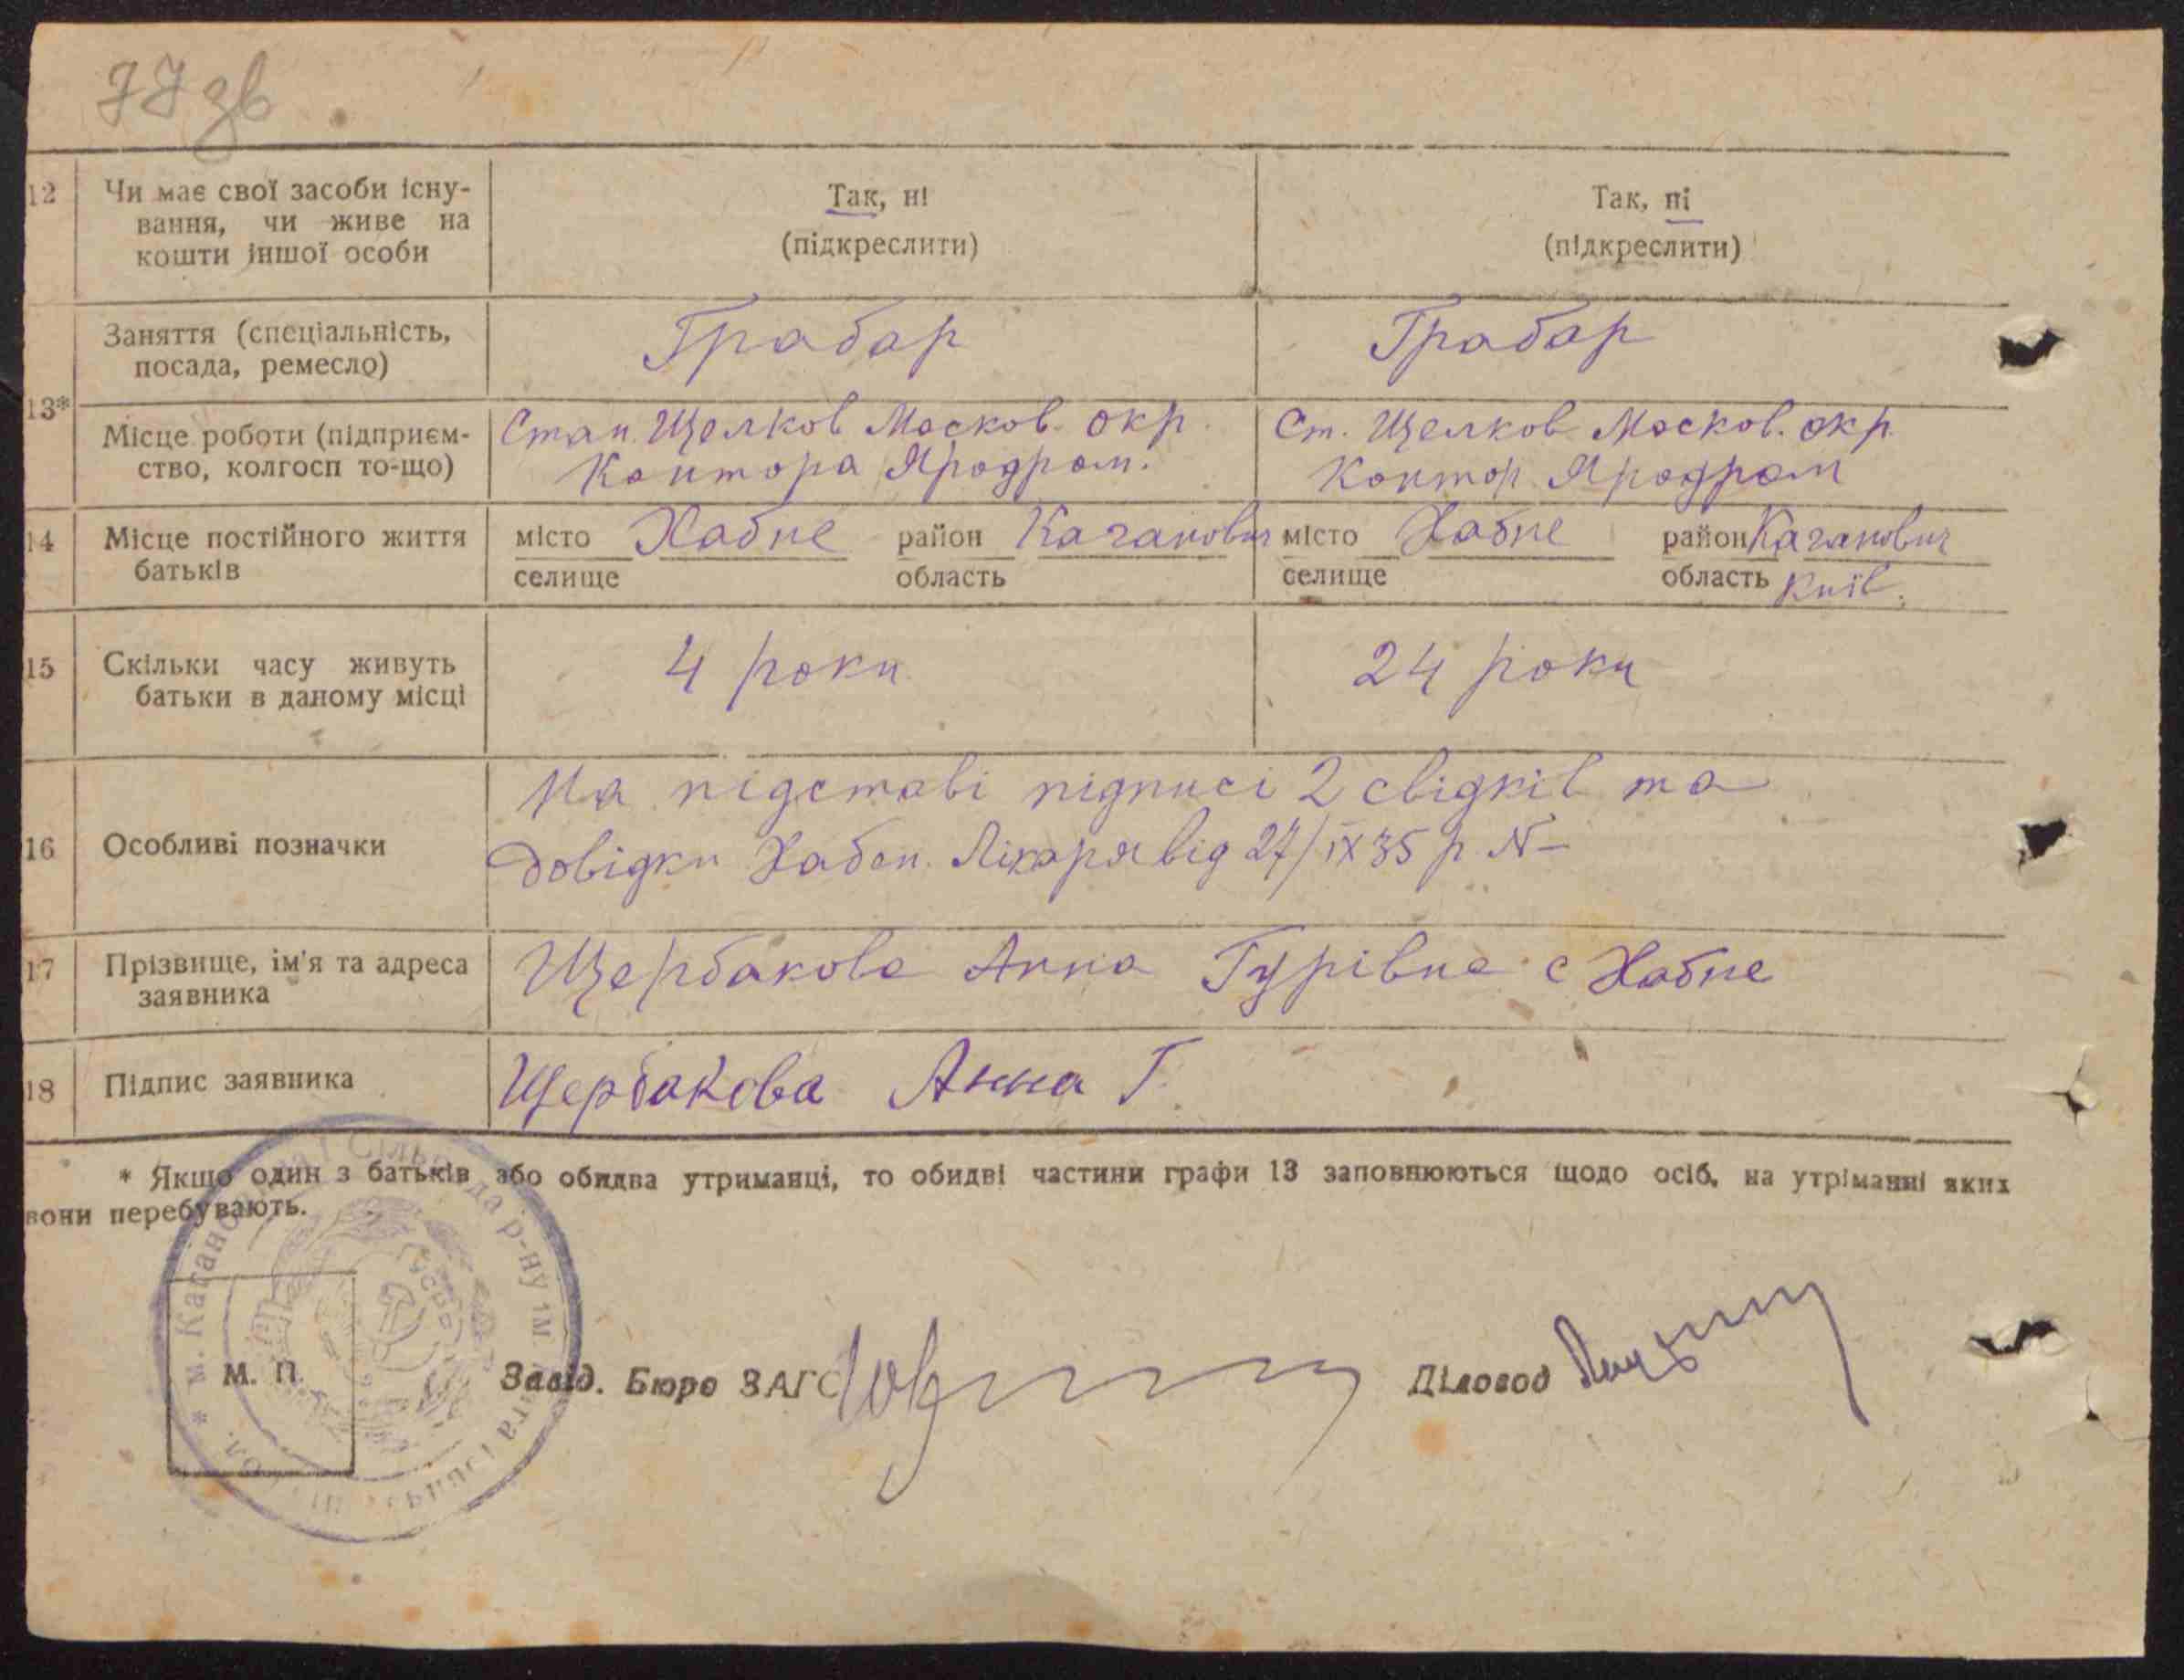 77 зв
12 Чи має свої засоби існу-
вання, чи живе на
кошти іншої особи
Так, ні
(підкреслити)
Так, ні
(підкреслити)
13*
Заняття (спеціальність,
посада, ремесло)
Грабар
Грабар
Місце роботи (підприєм-
ство, колгосп то-що)
Стан. Щелков Москов. окр.
Контора Яродром.
Ст. Щелков Москов. окр.
Контор Яродром
14 Місце постійного життя
батьків
місто Хабне район Каганович
селище область
місто Хабне район Каганович
селище область Київ.
15 Скільки часу живуть
батьки в даному місці
4 роки
24 роки
16 Особливі позначки
На підставі підписі 2 свідків та
довідки Хабен. Лікаря від 27/IX 35 р. N–
17 Прізвище, ім'я та адреса
заявника
Щербакова Анна Гурівна с Хабне
18 Підпис заявника
Щербакова Анна Г.
* Якщо один з батьків або обидва утриманці, то обидві частини графи 13 заповнюються щодо осіб, на утріманні яких
вони перебувають.
М. П.
Завід. Бюро ЗАГС
Діловод